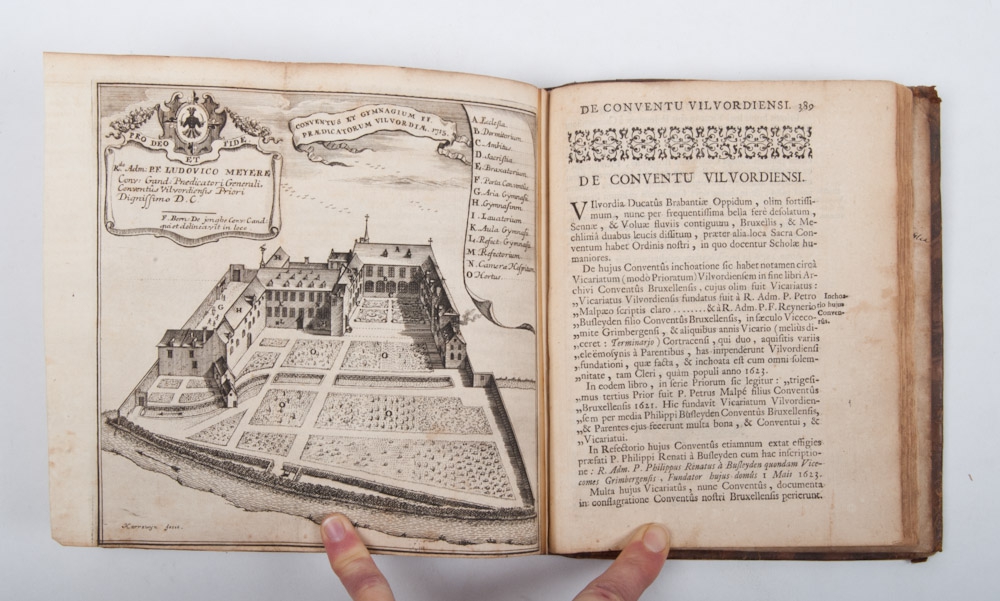 PRO DEO ET FIDE
Rdo Adm: P.F. LUDOVICO MEYERE
Conv: Gand: Prædicatori Generali.
Conventus Vilvordiensis Priori
Dignissimo D. C.
F. Bern: De jonghe Conv: Gand:
qui et delineavit in loco
CONVENTUS ET GYMNASIUM FF.
PRÆDICATORUM VILVORDIÆ. 1715.
A. Ecclesia.
B. Dormitorium.
C. Ambitus.
D. Sacristia.
E. Braxatorium.
F. Porta Conventûs
G. Aria Gymnasii
H. Gymnasium
I. Lavatorium
K. Aula Gymnasii
L. Refect: Gymnasii
M. Refectorium
N. Cameræ Hospitum
O Hortus.
G
H
O
O
O
O
Harrewyn fecit.
DE CONVENTU VILVORDIENSI. 389
DE CONVENTU VILVORDIENSI.
Vilvordia Ducatûs Brabantiæ Oppidum, olim fortissi-
mum, nunc per frequentissima bella ferè desolatum,
Sennæ, & Voluæ fluviis contiguum, Bruxellis, & Me-
chliniâ duabus leucis dissitum, præter alia loca Sacra Con-
ventum habet Ordinis nostri, in quo docentur Scholæ hu-
maniores.
De hujus Conventûs inchoatione sic habet notamen circà
Vicariatum (modò Prioratum) Vilvordiensem in fine libri Ar-
chivi Conventûs Bruxellensis, cujus olim fuit Vicariatus:
„Vicariatus Vilvordiensis fundatus fuit à R. Adm. P. Petro
„Malpæo scriptis claro ........ & à R. Adm. P. F. Reynerio
„Busleyden filio Conventûs Bruxellensis, in sæculo Viceco-
„mite Grimbergensi, & aliquibus annis Vicario (meliùs di-
„ceret: Terminario) Cortracensi, qui duo, aquisitis variis
„eleëmosynis à Parentibus, has impenderunt Vilvordiensi
„fundationi, quæ facta, & inchoata est cum omni solem-
„nitate, tam Cleri, quàm populi anno 1623.
Inchoa-
tio hujus
Conven-
tûs.
In eodem libro, in serie Priorum sic legitur: „trigesi-
„mus tertius Prior fuit P. Petrus Malpé filius Conventûs
„Bruxellensis 1621. Hic fundavit Vicariatum Vilvordien-
„sem per media Philippi Busleyden Conventûs Bruxellensis,
„& Parentes ejus fecerunt multa bona, & Conventui, &
„Vicariatui.
In Refectorio hujus Conventûs etiamnum extat effigies
præfati P. Philippi Renati à Busleyden cum hac inscriptio-
ne: R. Adm. P. Philippus Rinatus à Busleyden quondam Vice-
comes Grimbergensis, Fundator hujus domûs 1 Maii 1623.
Multa hujus Vicariatûs, nunc Conventûs, documenta
in conflagratione Conventûs nostri Bruxellensis perierunt.